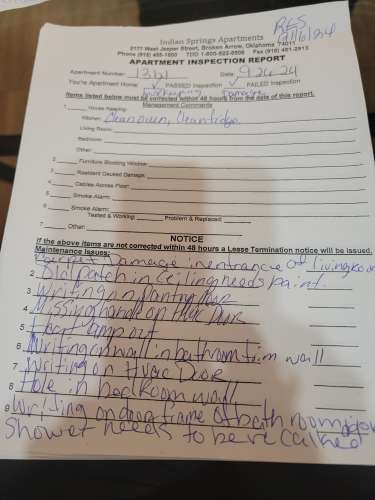 RGS
9/16/24
Indian Springs Apartments
2177 West Jasper Street, Broken Arrow, Oklahoma 74011
APARTMENT INSPECTION REPORT
Apartment Number: 1361 Date: 9-24-24
You're Apartment Home: ✓ PASSED Inspection ✓ FAILED Inspection
Housekeeping Damages
Items listed below must be corrected within 48 hours from the date of this report.
Management Comments
1. House Keeping:
Kitchen: Clean oven, Clean fridge
Living Room:
Bedroom:
Other:
2. Furniture Blocking Window:
3. Resident Caused Damage:
4. Cables Across Floor:
5. Smoke Alarm:
6. Smoke Alarm:
Tested & Working: Problem & Replaced:
7. Other:
NOTICE
If the above items are not corrected within 48 hours a Lease Termination notice will be issued.
Maintenance Issues:
1 Carpet Damage in entrance of livingroom
2 Old patch in ceiling needs paint.
3 Writing on pantry Door
4 Missing handle on HVAC Door
5 lamp out
6 Writing on wall in bathroom trim wall
7 Writing on HVAC Door
8 Hole in bedroom wall
9 Writing on door frame of bathroom
Shower needs to be recalked